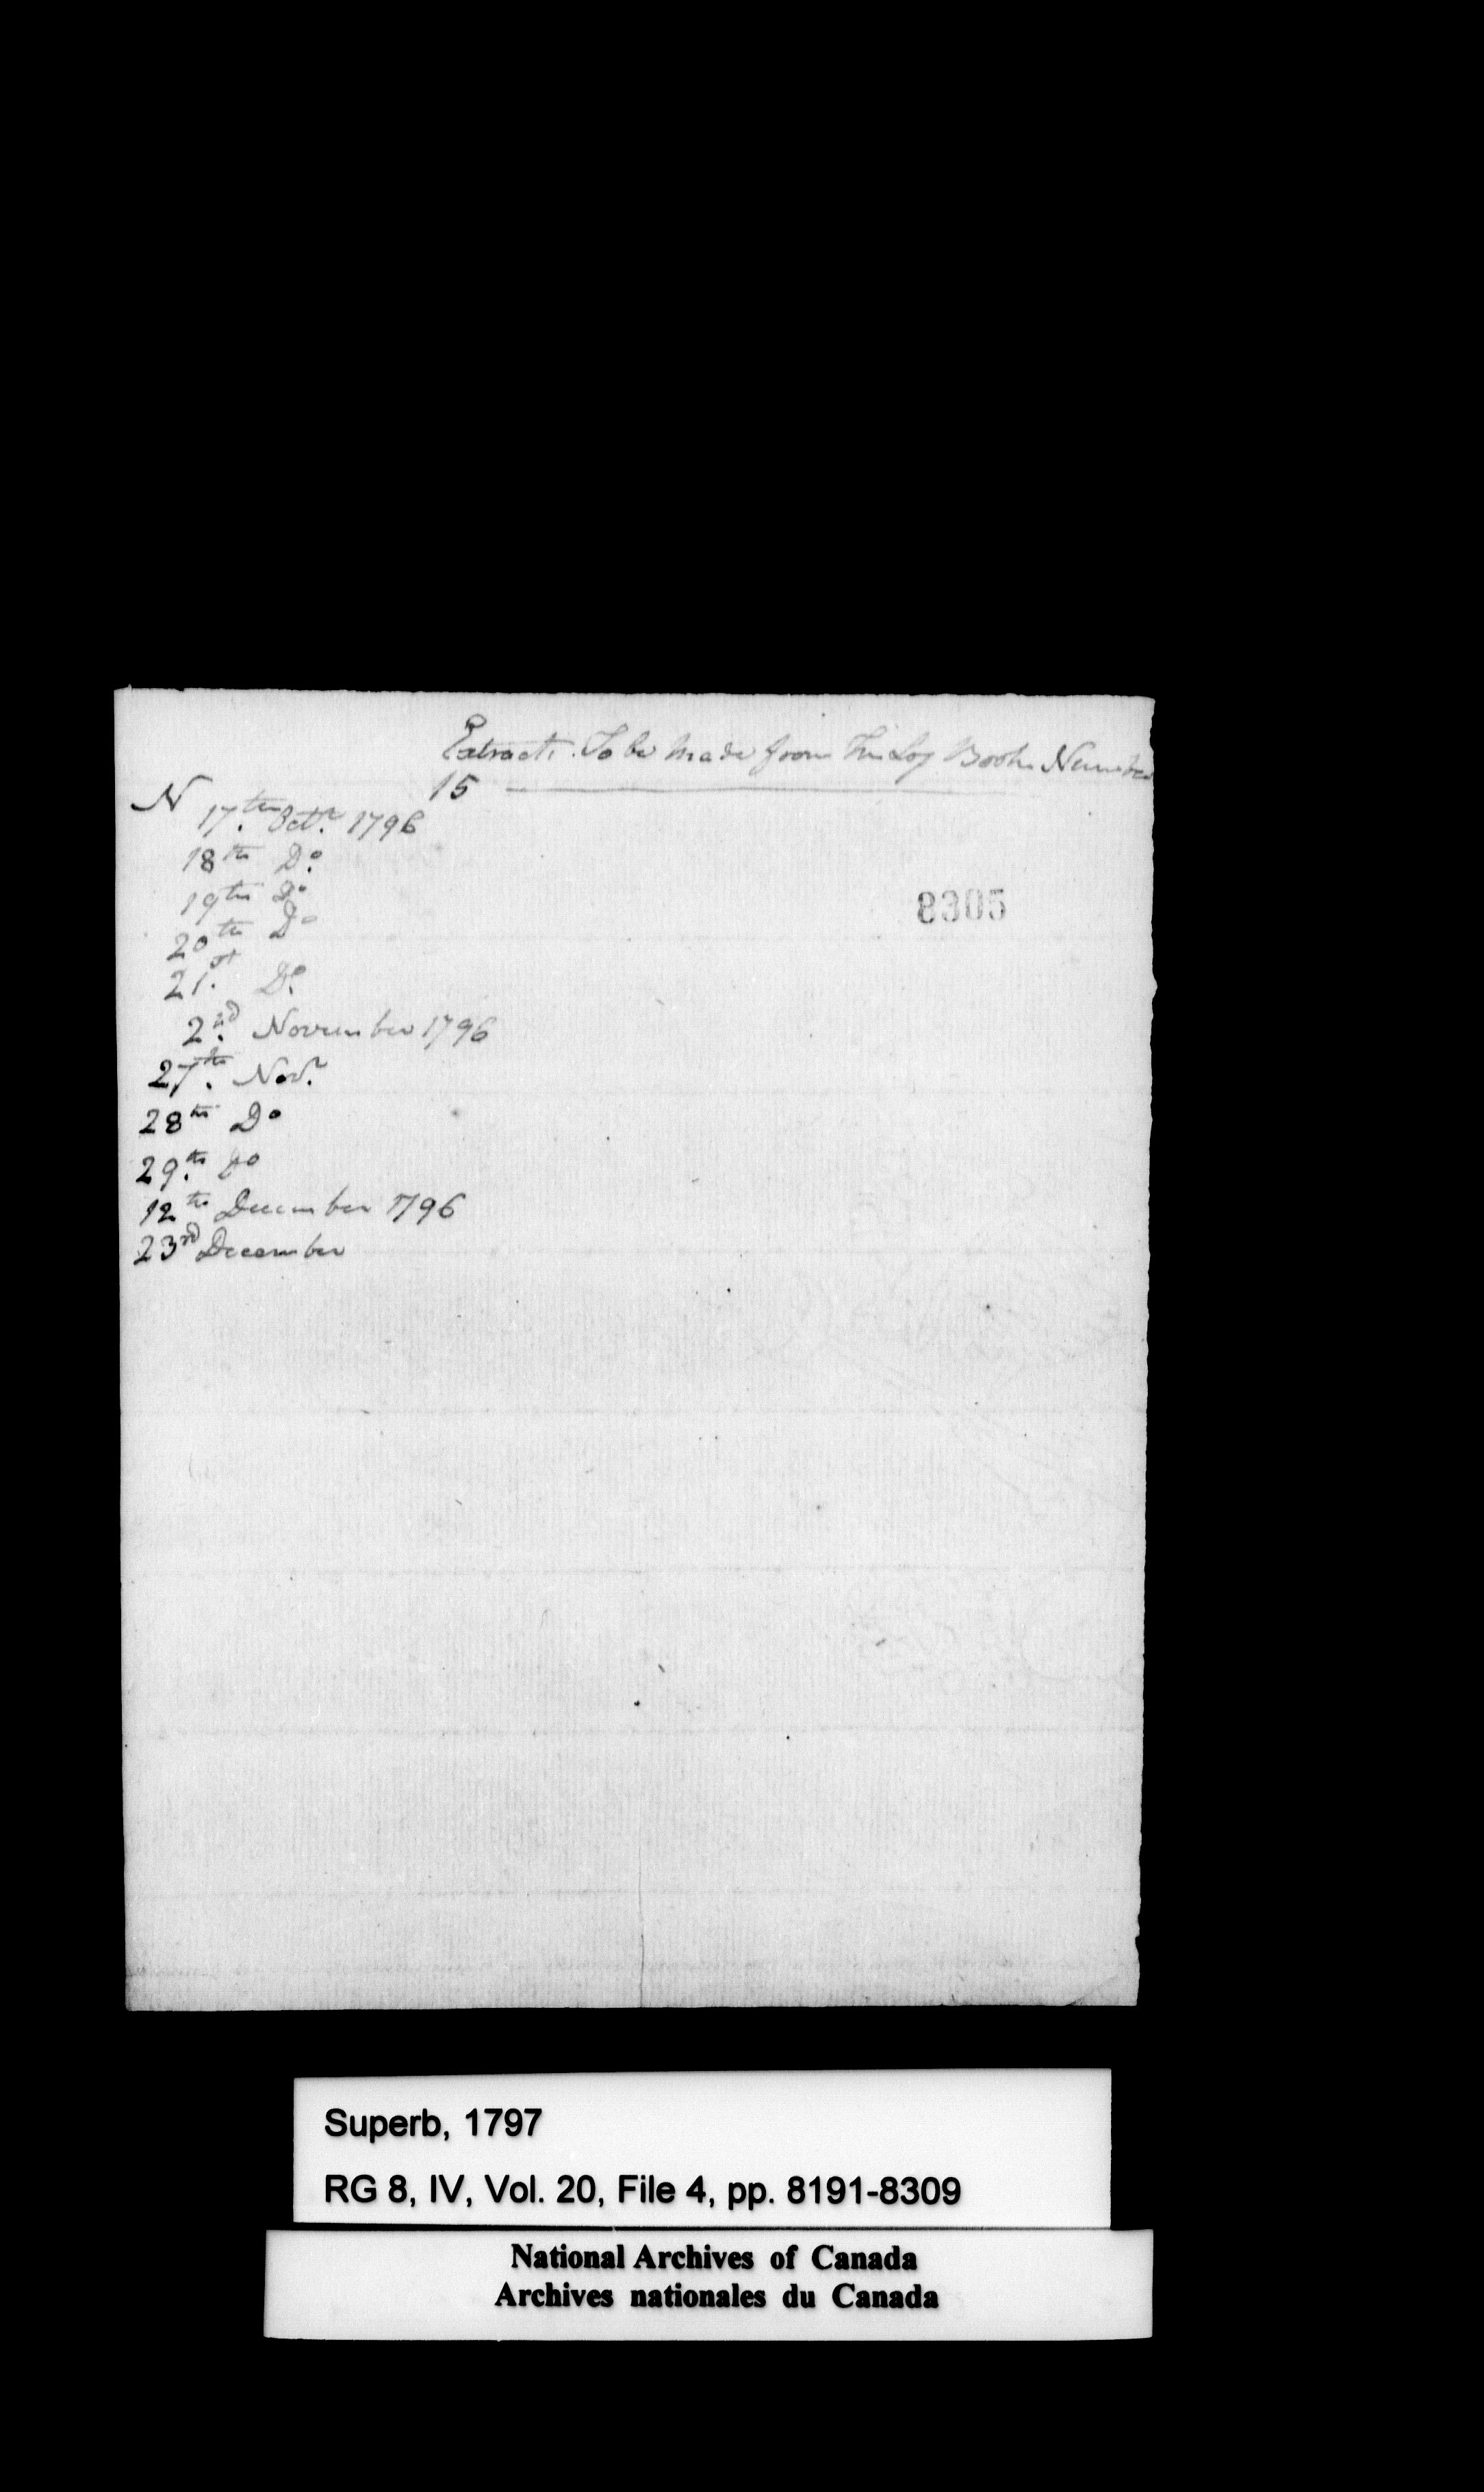 Extracts To be made from The Log Book Number
15
N
17th Octr 1796
18th Do
19th Do
8305
20th Do
21st Do
2nd November 1796
27th Novr
28th Do
29th Do
12th December 1796
23rd December
Superb, 1797
RG 8, IV, Vol. 20, File 4, pp. 8191-8309
National Archives of Canada
Archives nationales du Canada